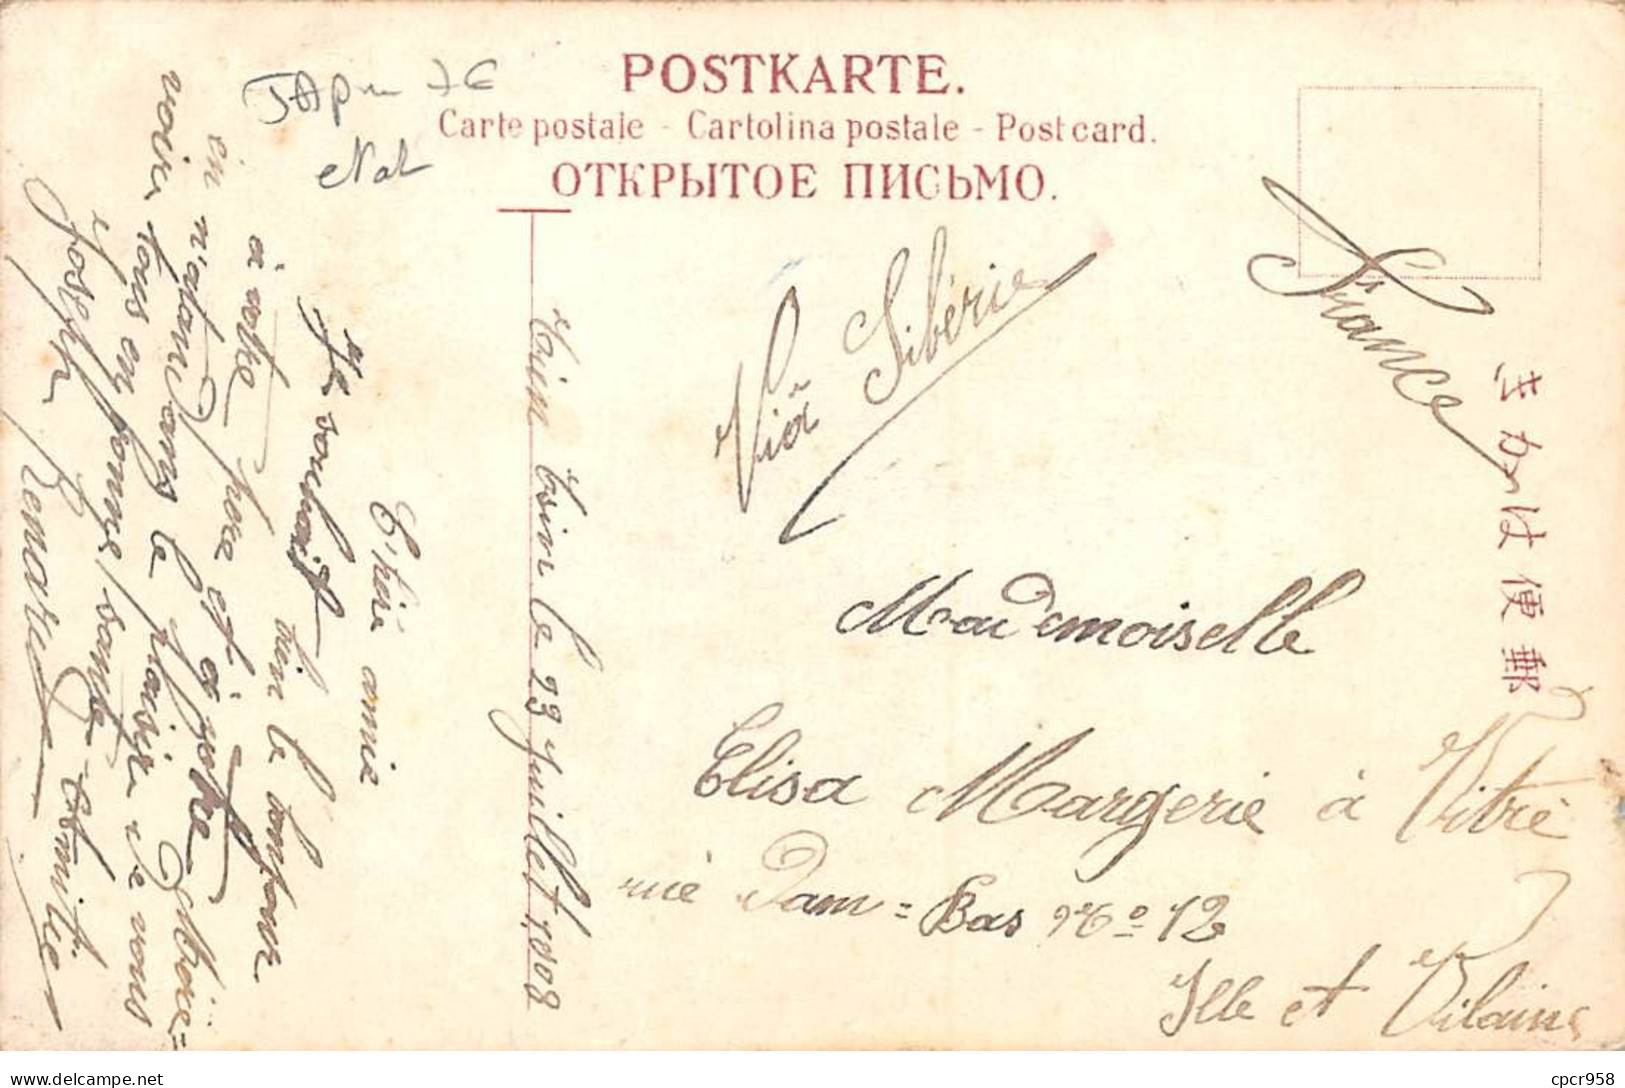 POSTKARTE.
Carte postale - Cartolina postale - Post card.
ОТКРЫТОЕ ПИСЬМО.
きかは便郵
Via Sibérie
France
Mademoiselle
Elisa Margerie à Vitré
rue Dam = Bas No 12
Ille et Vilaine
Tsin le 23 Juillet 1908
Chère amie
Je souhait bien le bonjour
à votre père et à votre
en n'atandans le plaisir de vous
voire tous en bonne santé
Joseph Renault
JAPon 7€
Nat
delcampe.net
cpcr958